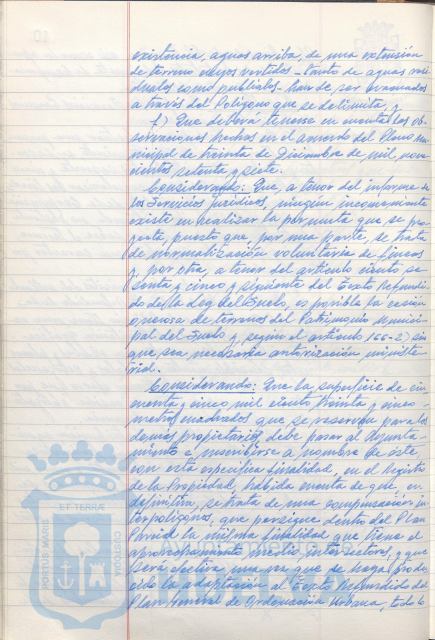 existencia, aguas arriba, de una extensión
de terreno cuyos vertidos - tanto de aguas resi
duales como pluviales - han de ser evacuados
a través del Polígono que se delimita, y
f) Que deberá tenerse en cuenta las ob
servaciones hechas en el acuerdo del Pleno mu
nicipal de treinta de Diciembre de mil nove
cientos setenta y siete.
Considerando: Que, a tenor del informe de
los Servicios Jurídicos, ningún inconveniente
existe en realizar la permuta que se pro
yecta, puesto que por una parte, se trata
de normalización voluntaria de fincas
y, por otra, a tenor del artículo ciento se
senta y cinco y siguiente del Texto Refundi
do de la Ley del Suelo, es posible la cesión
onerosa de terrenos del Patrimonio Munici
pal del Suelo y, según el artículo 166-2) sin
que sea necesaria autorización ministe
rial.
Considerando: Que la superficie de cin
cuenta y cinco mil ciento treinta y cinco
metros cuadrados que se reservan para los
demás propietarios, debe pasar al Ayunta-
miento e inscribirse a nombre de éste
con esta específica finalidad, en el Registro
de la Propiedad, habida cuenta de que, en
definitiva, se trata de una compensación in
terpolígonos, que persigue dentro del Plan
Parcial la misma finalidad que tiene el
aprovechamiento medio intersectores, y que
será efectiva una vez que se haya produ
cido la adaptación al Texto Refundido del
Plan General de Ordenación Urbana, todo lo
PORTUS MARIS
ET TERRÆ
CUSTODIA